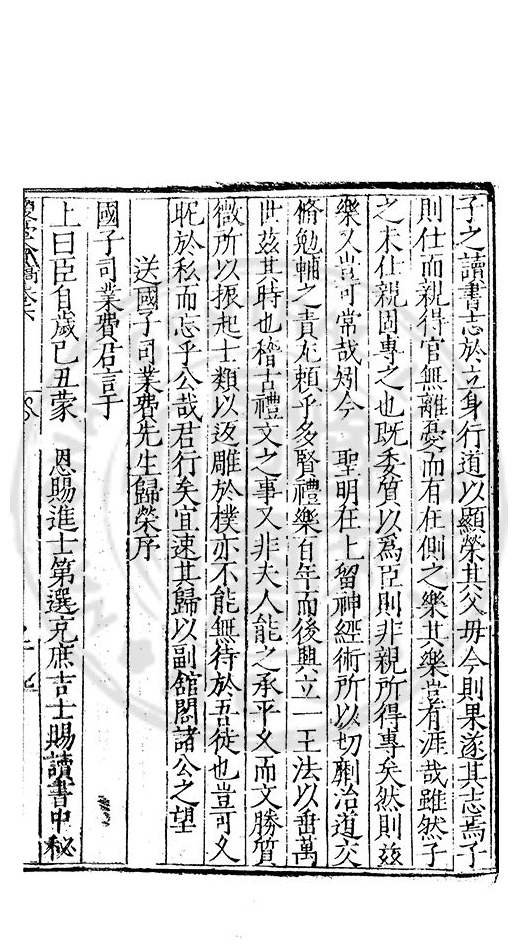 子之讀書志於立身行道以顯榮其父母今則果遂其志焉子
則仕而親得官無離憂而有在側之樂其樂豈有涯哉雖然子
之未仕親固專之也既委質以爲臣則非親所得專矣然則兹
樂又豈可常哉矧今　聖明在上留神經術所以切劘治道交
脩勉輔之責尤頼乎多賢禮樂百年而後興立一王法以垂萬
世兹其時也稽古禮文之事又非夫人能之承平久而文勝質
微所以振起士類以返雕於樸亦不能無待於吾徒也豈可久
昵於私而忘乎公哉君行矣宜速其歸以副舘閣諸公之望
送國子司業費先生歸榮序
國子司業費君言于
上曰臣自歲己丑蒙　恩賜進士第選充庶吉士賜讀書中秘